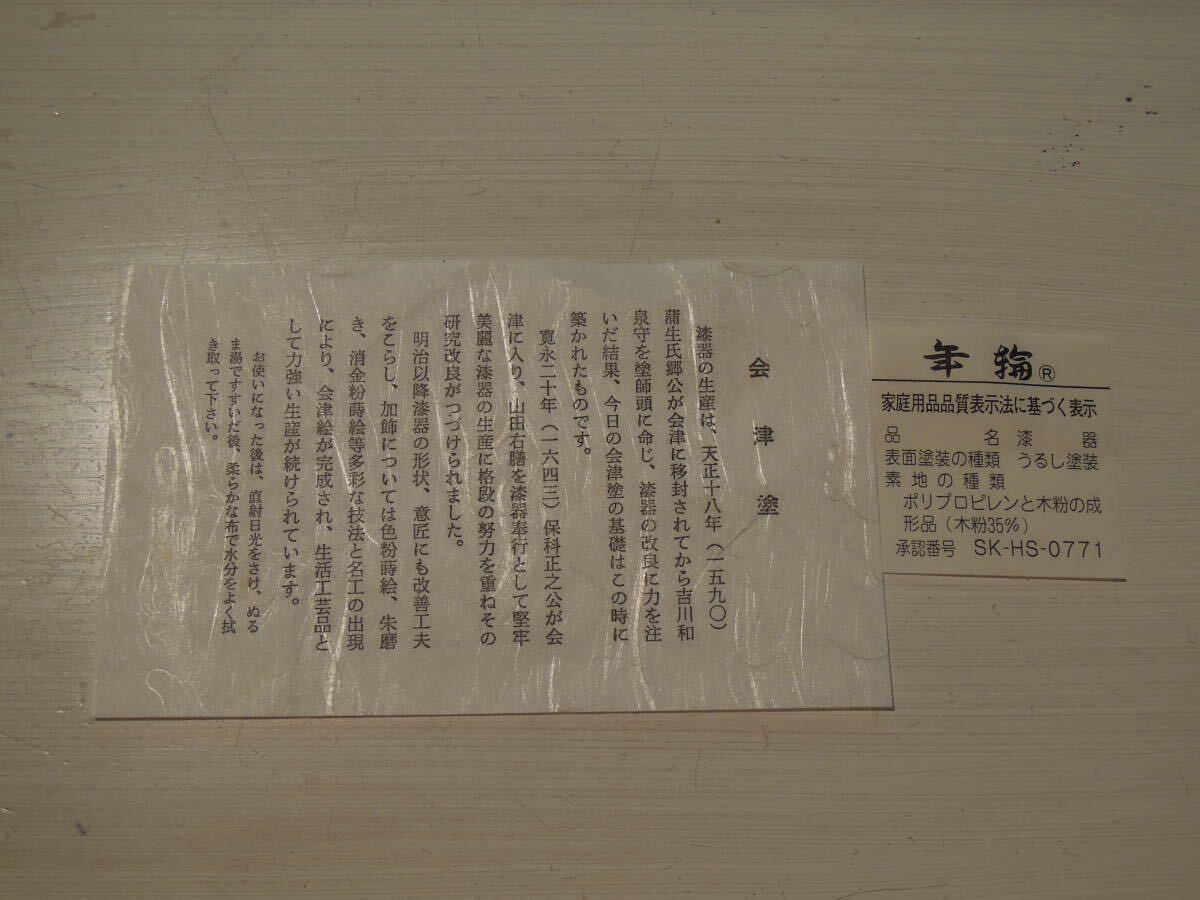 会津塗
漆器の生産は、天正十八年(一五九〇)
蒲生氏郷公が会津に移封されてから吉川和
泉守を塗師頭に命じ、漆器の改良に力を注
いだ結果、今日の会津塗の基礎はこの時に
築かれたものです。
寛永二十年(一六四三)保科正之公が会
津に入り、山田右膳を漆器奉行として堅牢
美麗な漆器の生産に格段の努力を重ねその
研究改良がつづけられました。
明治以降漆器の形状、意匠にも改善工夫
をこらし、加飾については色粉蒔絵、朱磨
き、消金粉蒔絵等多彩な技法と名工の出現
により、会津絵が完成され、生活工芸品と
して力強い生産が続けられています。
お使いになった後は、直射日光をさけ、ぬる
ま湯ですすいだ後、柔らかな布で水分をよく拭
き取って下さい。
年輪®
家庭用品品質表示法に基づく表示
品名 漆器
表面塗装の種類 うるし塗装
素地の種類
ポリプロピレンと木粉の成
形品(木粉35%)
承認番号 SK-HS-0771